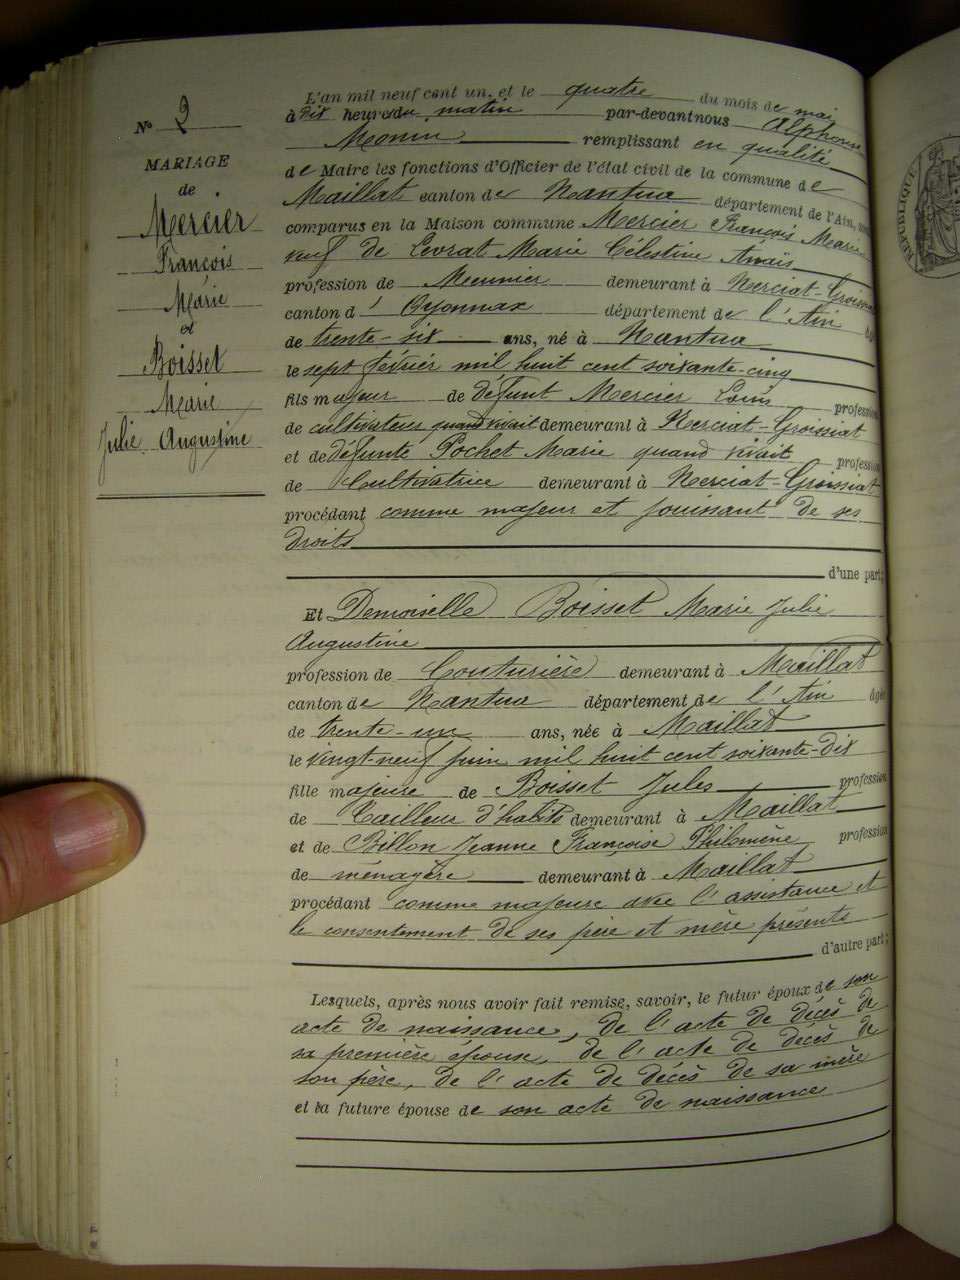 N° 2
MARIAGE
de
Mercier
François
Marie
et
Boisset
Marie
Julie Augustine
L'an mil neuf cent un, et le quatre du mois de mai
à dix heures du matin par-devant nous Alphonse
Monin remplissant en qualité
de Maire les fonctions d'Officier de l'état civil de la commune de
Maillat canton de Nantua département de l'Ain, sont
comparus en la Maison commune Mercier François Marie
veuf de Levrat Marie Célestine Anaïs
profession de Meunier demeurant à Nerciat-Groissiat
canton d'Oyonnax département de l'Ain âgé
de trente-six ans, né à Nantua
le sept février mil huit cent soixante-cinq
fils majeur de défunt Mercier Louis profession
de cultivateur quand vivait demeurant à Nerciat-Groissiat
et de défunte Pochet Marie quand vivait profession
de Cultivatrice demeurant à Nerciat-Groissiat
procédant comme majeur et jouissant de ses
droits
d'une part;
Et Demoiselle Boisset Marie Julie
Augustine
profession de Couturière demeurant à Maillat
canton de Nantua département de l'Ain âgée
de trente-un ans, née à Maillat
le vingt-neuf juin mil huit cent soixante-dix
fille majeure de Boisset Jules profession
de Tailleur d'habits demeurant à Maillat
et de Billon Jeanne Françoise Philomène profession
de ménagère demeurant à Maillat
procédant comme majeure avec l'assistance et
le consentement de ses père et mère présents
d'autre part;
Lesquels, après nous avoir fait remise, savoir, le futur époux de son
acte de naissance, de l'acte de décès de
sa première épouse, de l'acte de décès de
son père, de l'acte de décès de sa mère
et la future épouse de son acte de naissance
RÉPUBLIQUE